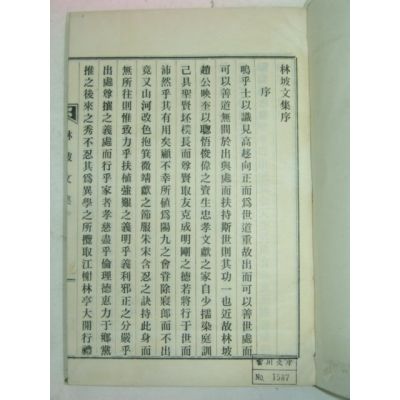 林坡文集序
序
嗚乎士以識見高趍向正而爲世道重故出而可以善世處而
可以善道無間於出與處而扶持斯世則其功一也近故林坡
趙公映奎以聰悟俊偉之資生忠孝文獻之家自少擩染庭訓
己具聖賢坯樸長而尊賢取友克成明剛之德若將行于世而
沛然乎其有用矣顧不幸所値爲陽九之會甞除寢郎而不出
竟又山河改色抱箕微靖獻之節服朱宋含忍之訣持此身而
無所往則惟致力乎扶植強艱之義明乎義利邪正之分嚴乎
出處尊攘之義處而行乎家者孝慈盡乎倫理德惠力于鄉黨
推之後來之秀不忍其爲異學之所攬取江榭林亭大開行禮
林坡文集
序
No. 1587